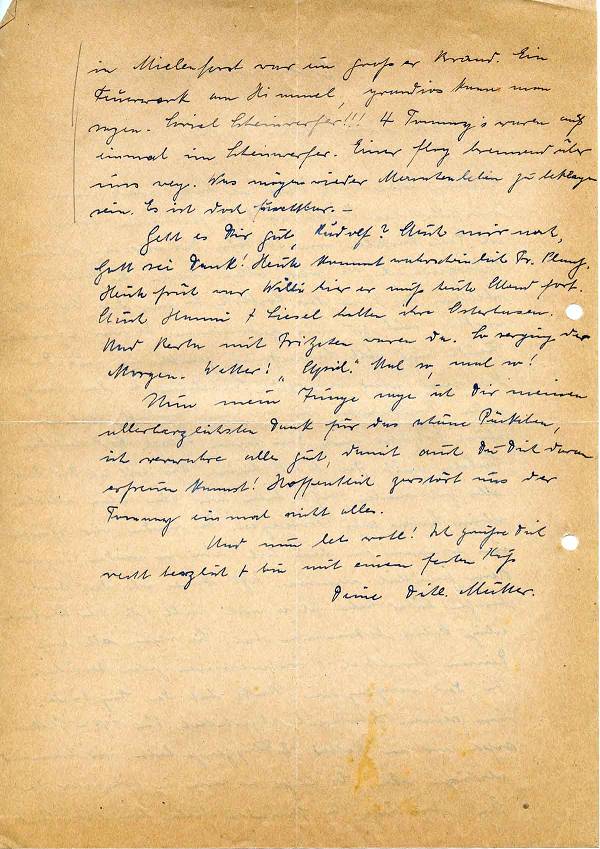 in Mielenforst war ein großer Brand. Ein
Feuerwerk am Himmel, grandios kann man
sagen. Soviel Scheinwerfer!!! 4 Tommy's waren auf
einmal im Scheinwerfer. Einer flog brennend über
uns weg. Was mögen wieder Menschenleben zu beklagen
sein. Es ist doch furchtbar. –
Geht es Dir gut, Rudolf? Auch mir noch,
Gott sei Dank! Heute kommt wahrscheinlich Fr.
Heute früh war Willi hier er muß heute Abend fort.
Auch Hanni + Liesel hatten ihre Osterhasen.
Und Herta mit Frizchen waren da. So verging der
Morgen. Wetter! „April." Mal so, mal so!
Nun mein Junge sage ich Dir meinen
allerherzlichsten Dank für das schöne Päckchen,
ich verwahre alles gut, damit auch Du Dich daran
erfreuen kannst! Hoffentlich zerstört uns der
Tommy einmal nicht alles.
Und nun leb wohl! Ich grüße Dich
recht herzlich + bin mit einem festen Kuß
Deine Dich l. Mutter.